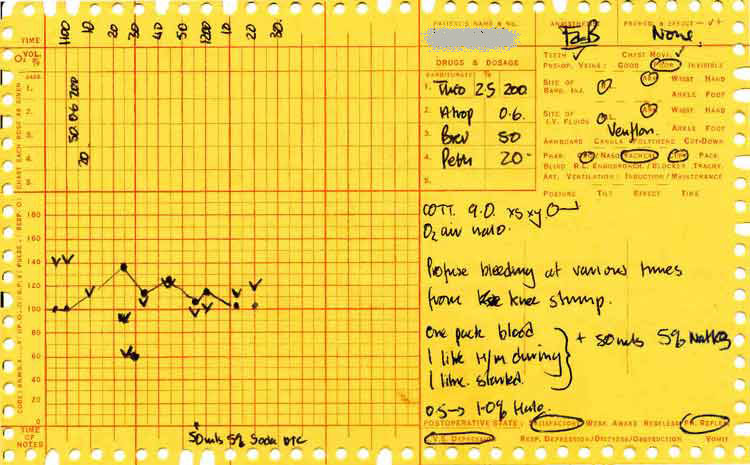 TIME 1100 10 20 30 40 50 1200 10 20 30.
VOL.
O2
1.
2.
3.
4.
5.
200
0.6
50
20.
180
160
140
120
100
80
60
40
20
0
TIME OF NOTES
50mls 5% Soda
PATIENT'S NAME & NO.
DRUGS & DOSAGE
BARBITURATE %
1. Thio 2.5 200
2. Atrop 0.6.
3. Brev 50
4. Peth 20
5.
ANAESTHETIST
PREMED. & EFFECT — ✓+
None
TEETH ✓ CHEST MOVE. ✓
PRE-OP. VEINS: GOOD POOR INVISIBLE
SITE OF BARB. INJ. R L ARM WRIST HAND
ANKLE FOOT
SITE OF I.V. FLUIDS R L ARM WRIST HAND
Venflon. ANKLE FOOT
ARMBOARD CANULA POLYTHENE CUT-DOWN
PHAR. NASO TRACHEAL PACK
BLIND R.L. ENDOBRONCH./BLOCKER TRACHY.
ART. VENTILATION: INDUCTION/MAINTENANCE
POSTURE TILT EFFECT TIME
COTT. 9.0.
O2 air halo.
Profuse bleeding at various times
from knee stump.
One pack blood
1 litre H/m during + 50mls 5%
1 litre started.
0.5 → 1.0% Halo.
POSTOPERATIVE STATE: SATISFACTORY WEAK AWAKE RESTLESS PH. REFLEX
C.V.S. DEPRESSION RESP. DEPRESSION/DISTRESS/OBSTRUCTION VOMIT